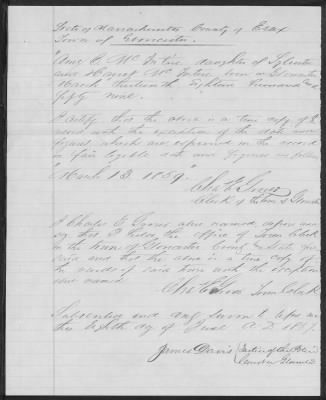 State of Massachusetts County of Essex
Town of Gloucester.
"Amy C. McIntire daughter of Sylvester
and Harriet McIntire born in Gloucester
March thirteenth Eighteen hundred and
fifty nine."
I certify that the above is a true copy of the
record with the exception of the date and
figures which are expressed in the record
in fair legible and figures as follows
"March 13. 1859."
Clerk of the town of Gloucester
I Charles above named depose and
say that I hold the office of Town Clerk
in the town of Gloucester County and State
said and that the above is a true copy of
the records of said town with the exception
above named
Town Clerk
Subscribed and sworn to before me
this eighth day of June A.D. 1867.
James Davis Justice of the Peace